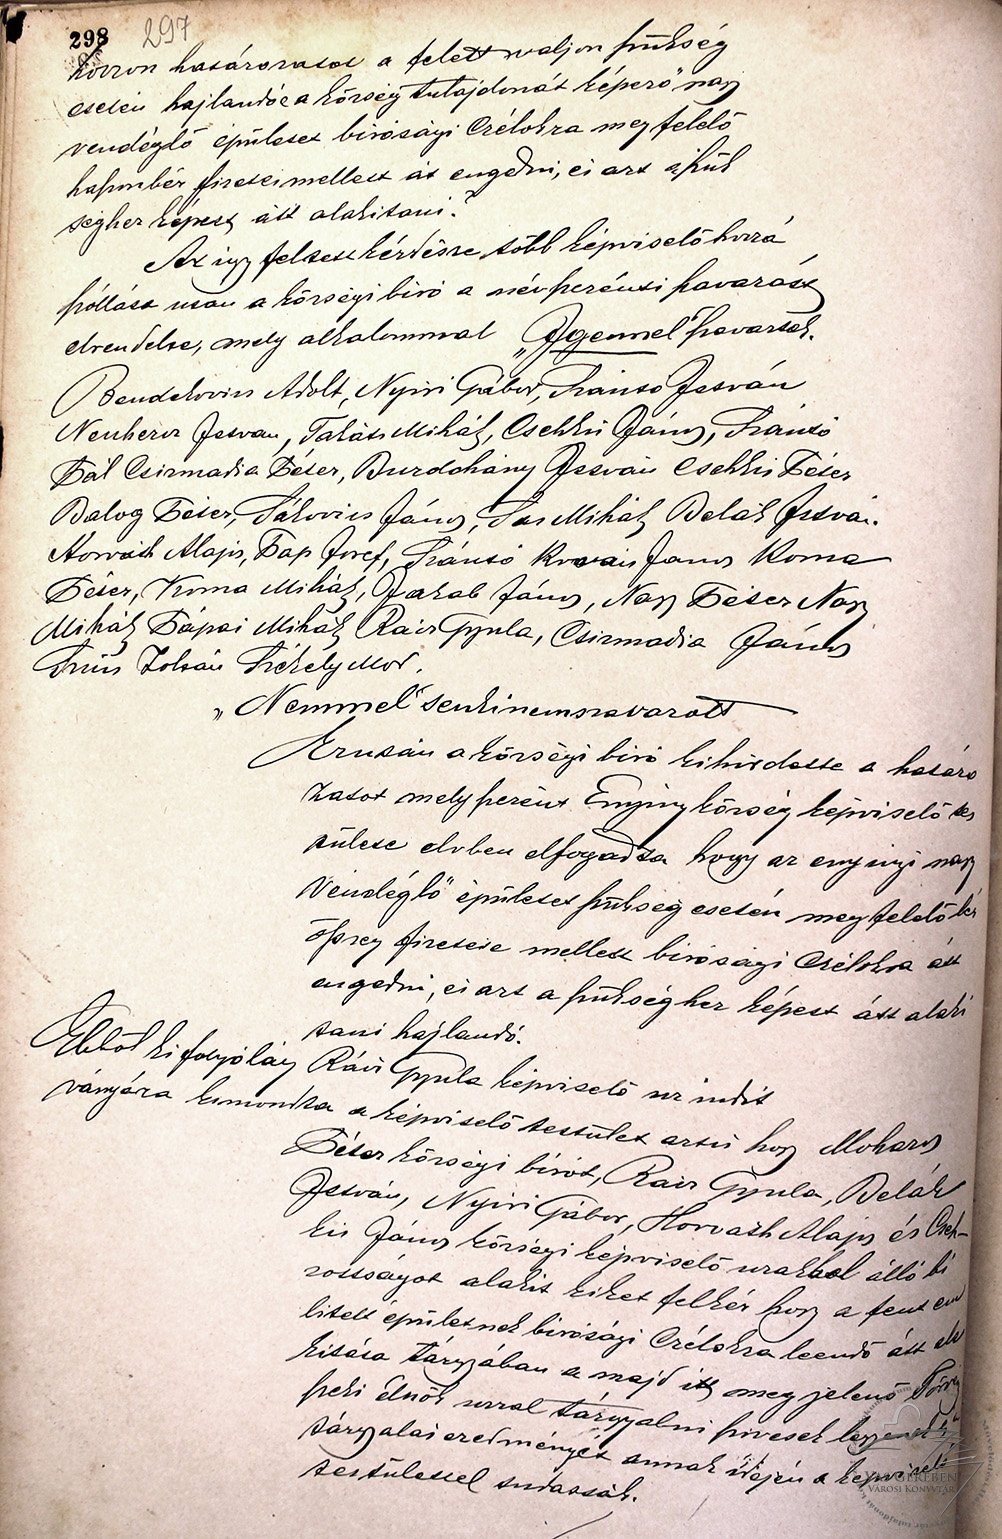 298 297
hozzon határozatot a felett valjon szükség
esetén hajlandó e a község tulajdonát képező "nagy
vendéglő" épületet birósági Czélokra megfelelő
haszonbér fizetés mellett át engedni, és azt a szük
séghez képest átt alakitani?
Az igy feltett kérdésre több képviselő hozzá
szóllása után a községi biró a névszerénti szavazást
elrendelte, mely alkalommal "Igennel" szavaztak.
Bendekovits Adolf, Nyiri Gábor, Szántó István
Neuherz István, Takáts Mihál, Csekkei János, Szántó
Pál Csizmadia Péter, Burdohány István Csekkei Péter
Balog Péter, Takovits János, Sas Mihál Belák István
Horváth Alajos, Pap Jozef, Szántó Kováts János Koma
Péter, Koma Mihál, Jakab János, Nagy Péter Nagy
Mihál Pápai Mihál Rácz Gyula, Csizmadia János
Szüts Zoltán Székely Mór.
"Nemmel" senki nem szavazott
Ezután a községi biró kihirdette a határo
zatot mely szerént Enying község képviselő tes
tülete elvben elfogadta hogy az enyingi nagy
Vendéglő" épületet szükség esetén megfelelő bér
összeg fizetése mellett birósági Czélokra átt
engedni, és azt a szükséghez képest átt alaki
tani hajlandó.
Ebből kifolyólag Rácz Gyula képviselő ur indit
ványára kimondta a képviselő testület aztis hogy Moharos
Péter községi birót, Rácz Gyula, Belák
István, Nyiri Gábor, Horváth Alajos és Csek-
kei János községi képviselő urakból álló bi
zottságot alakit kiket felkér hogy a fent em
litett épületnek birósági Czélokra leendő átt ala
kitása tárgyában a majd itt megjelenő Törvény
széki elnök urral tárgyalni szivesek legyenek s
tárgyalás eredményét annak idején a képviselő
testülettel tudassák.
VÁROSI KÖNYVTÁR